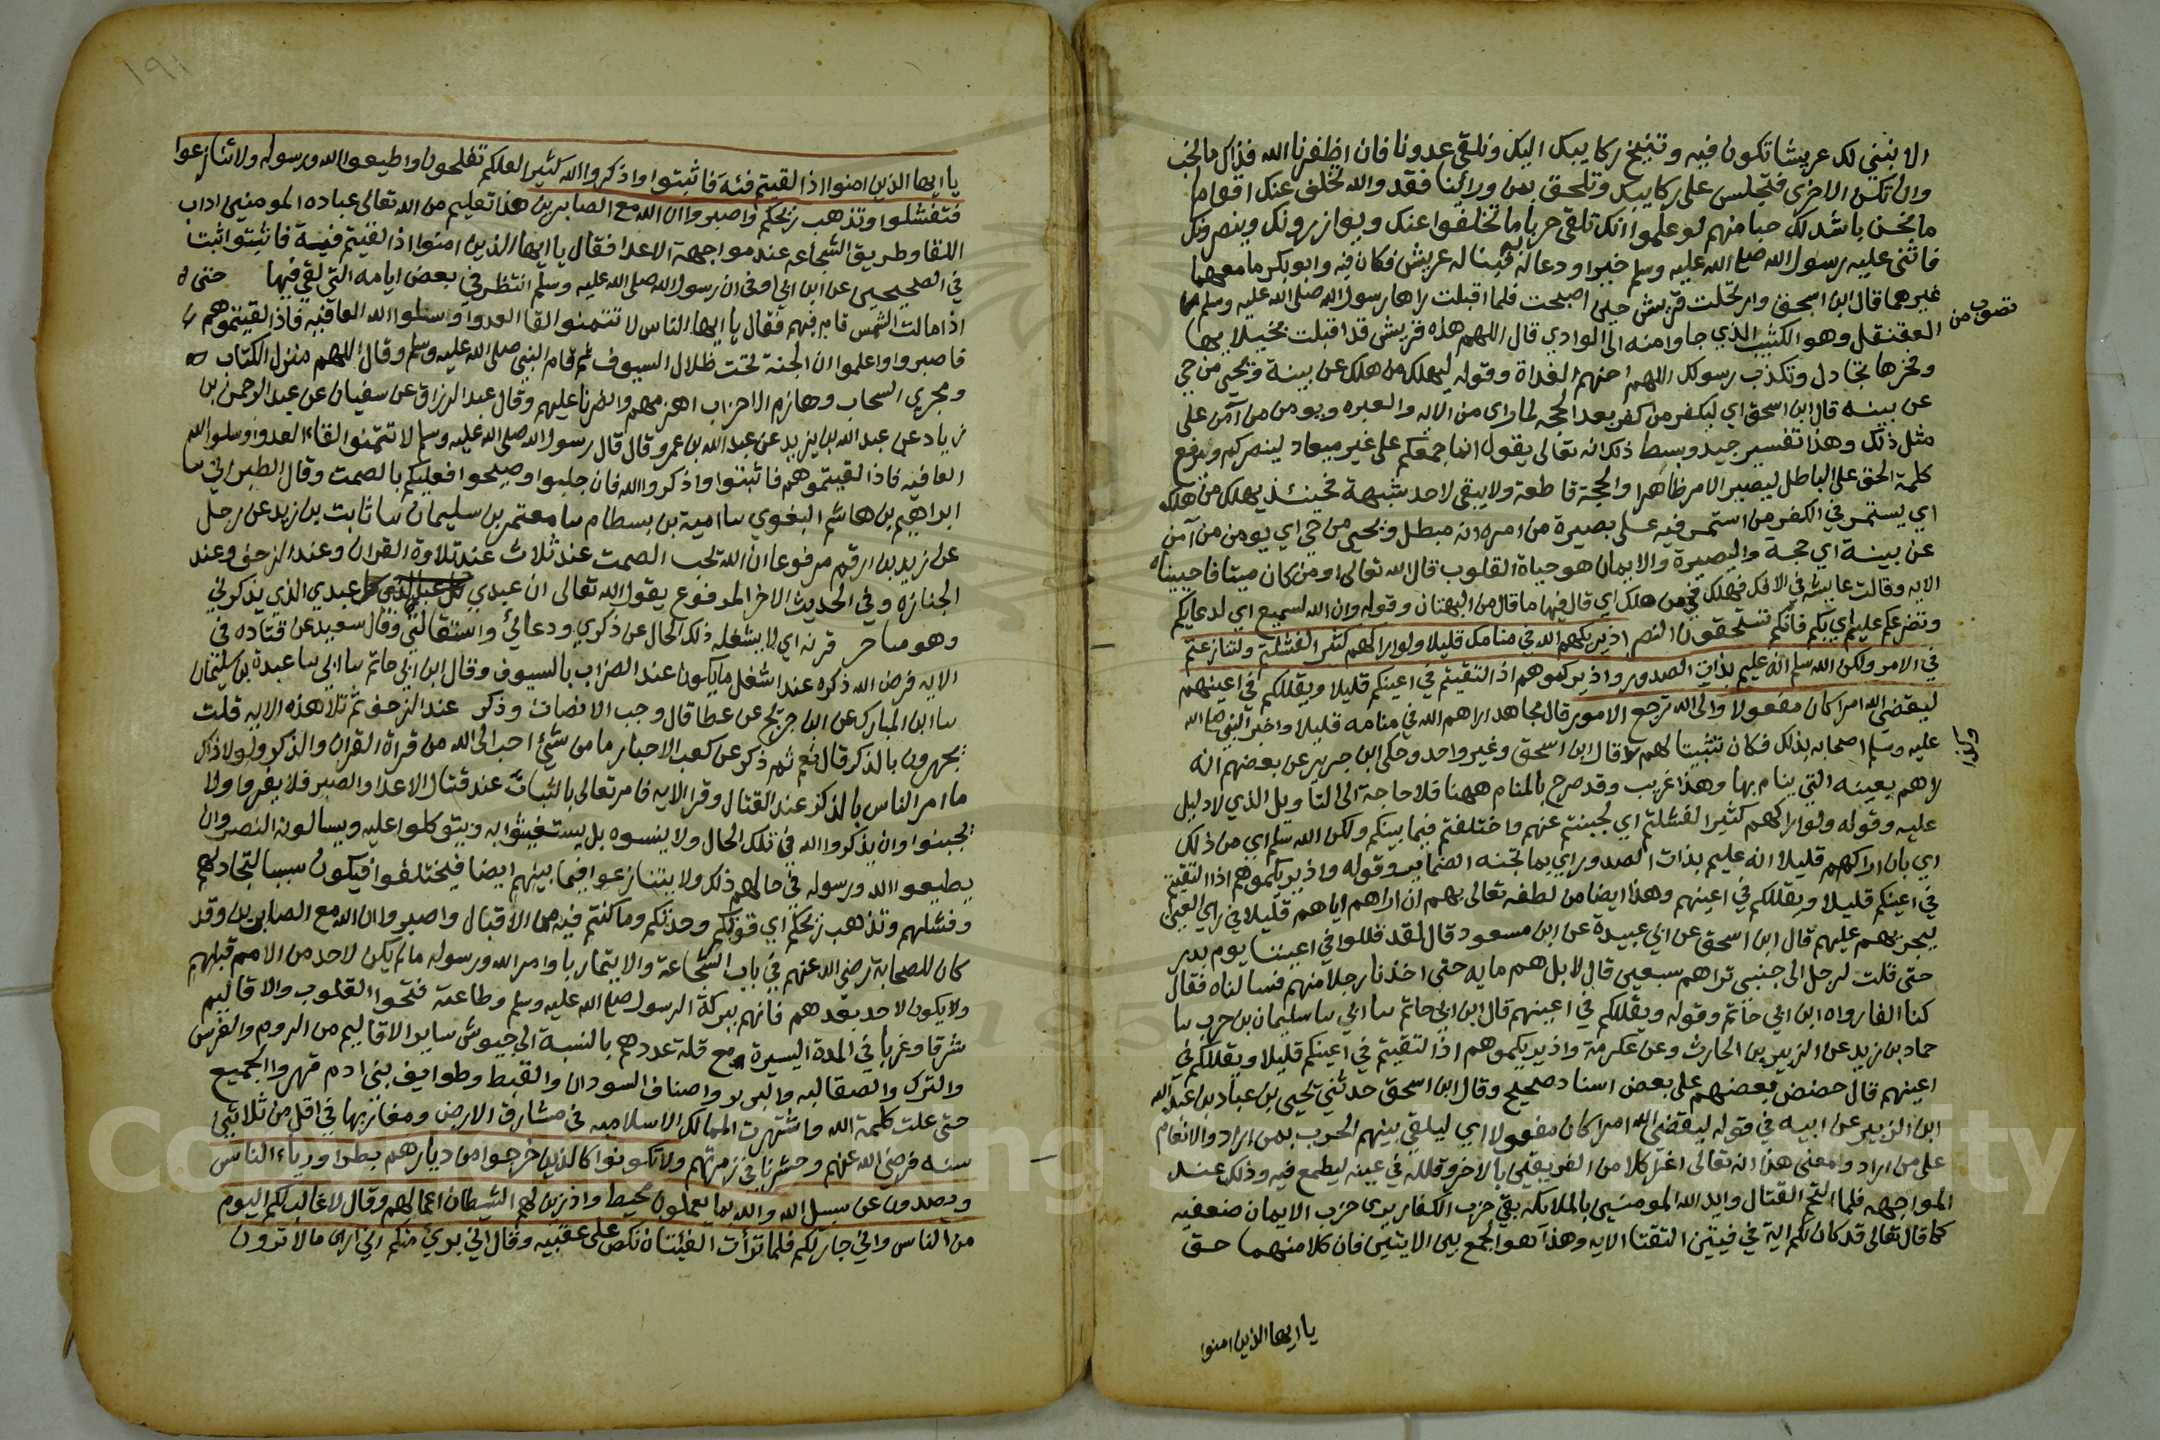 الا نبني لك عريشا تكون فيه وتنيخ ركايبك اليك ونلقي عدونا فان اظفرنا الله فذاك ما نحب
وان تكن الاخرى فتجلس على ركايبك وتلحق بمن ورائنا فقد والله تخلف عنك اقوام ما
ما نحن باشد لك حبا منهم لو علموا انك تلقى حربا ما تخلفوا عنك ويوازرونك وينصرونك
فاثنى عليه رسول الله صلى الله عليه وسلم خيرا ودعا له فبنا له عريش فكان فيه وابو بكر ما معهما
غيرهما قال ابن اسحق وارتحلت قريش حين اصبحت فلما اقبلت راها رسول الله صلى الله عليه وسلم
تصوب من العقنقل وهو الكثيب الذي جاوا منه الى الوادي قال اللهم هذه قريش قد اقبلت بخيلايها
وفخرها تجادل وتكذب رسولك اللهم احنهم الغداة وقوله ليهلك من هلك عن بينة ويحيى من حي
عن بينه قال ابن اسحق اي ليكفر من كفر بعد الحجه لما راى من الايه والعبره ويومن من آمن على
مثل ذلك وهذا تفسير جيد وبسط ذلك انه تعالى يقول انما جمعكم على غير ميعاد لينصركم ويرفع
كلمة الحق على الباطل ليصير الامر ظاهرا والحجة قاطعة ولا يبقى لاحد شبهة فحينئذ يهلك من هلك
اي يستمر في الكفر من استمر فيه على بصيرة من امره انه مبطل ويحيى من حي اي يومن من آمن
عن بينة اي حجة والبصيرة والايمان هو حياة القلوب قال الله تعالى او من كان ميتا فاحييناه
الايه وقالت عايشه في الافك فهلك في من هلك اي قال فيها ما قال من البهتان وقوله وان الله لسميع اي لدعايكم
وتضرعكم عليم اي بكم فانكم تستحقون النصر اذ يريكهم الله في منامك قليلا ولو اراكهم كثيرا لفشلتم ولتنازعتم
في الامر ولكن الله سلم انه عليم بذات الصدور واذ يريكموهم اذ التقيتم في اعينكم قليلا ويقللكم في اعينهم
ليقضي الله امرا كان مفعولا والى الله ترجع الامور قال مجاهد اراهم الله في منامه قليلا واخبر النبي صلى الله
عليه وسلم اصحابه بذلك فكان تثبيتا لهم وكذا قال ابن اسحق وغير واحد وحكى ابن جرير عن بعضهم انه
راهم بعينه التي ينام بها وهذا غريب وقد صرح بالمنام ههنا فلا حاجة الى التاويل الذي لا دليل
عليه وقوله ولو اراكهم كثيرا لفشلتم اي لجبنتم عنهم واختلفتم فيما بينكم ولكن الله سلم اي من ذلك
اي بان اراكهم قليلا انه عليم بذات الصدور اي بما تجنه الضماير وقوله واذ يريكموهم اذ التقيتم
في اعينكم قليلا ويقللكم في اعينهم وهذا ايضا من لطفه تعالى بهم ان اراهم اياهم قليلا في راي العين
ليجريهم عليهم قال ابن اسحق عن ابي عبيدة عن ابن مسعود قال لقد قللوا في اعيننا يوم بدر
حتى قلت لرجل الى جنبي تراهم سبعين قال لا بل هم مايه حتى اخذنا رجلا منهم فسالناه فقال
كنا الفا رواه ابن ابي حاتم وقوله ويقللكم في اعينهم قال ابن ابي حاتم سا ابي سا سليمان بن حرب سا
حماد بن زيد عن الزبير بن الحارث وعن عكرمة واذ يريكموهم اذ التقيتم في اعينكم قليلا ويقللكم في
اعينهم قال حضض بعضهم على بعض اسناد صحيح وقال ابن اسحق حدثني يحيى بن عباد بن عبد الله
ابن الزبير عن ابيه في قوله ليقضي الله امرا كان مفعولا اي ليلقي بينهم الحرب بمن اراد والانعام
على من اراد ومعنى هذا انه تعالى اغرا كلا من الفريقين بالاخر وقلله في عينه ليطمع فيه وذلك عند
المواجهه فلما التحم القتال وايد الله المومنين بالملايكه بقي حزب الكفار يرى حزب الايمان ضعفيه
كما قال تعالى قد كان لكم اية في فيتين التقتا الايه وهذا هو الجمع بين الايتين فان كلا منهما حق
يا ايها الذين امنوا
١٩١
يا ايها الذين امنوا اذا لقيتم فئة فاثبتوا واذكروا الله كثيرا لعلكم تفلحون واطيعوا الله ورسوله ولا تنازعوا
فتفشلوا وتذهب ريحكم واصبروا ان الله مع الصابرين هذا تعليم من الله تعالى عباده المومنين اداب
اللقا وطريق الشجاعه عند مواجهة الاعدا فقال يا ايها الذين امنوا اذا لقيتم فيئة فاثبتوا ثبت
في الصحيحين عن ابن ابي اوفى ان رسول الله صلى الله عليه وسلم انتظر في بعض ايامه التي لقي فيها حتى
اذا مالت الشمس قام فيهم فقال يا ايها الناس لا تتمنوا لقا العدو واسلوا الله العافيه فاذا لقيتموهم
فاصبروا واعلموا ان الجنة تحت ظلال السيوف ثم قام النبي صلى الله عليه وسلم وقال اللهم منزل الكتاب
ومجري السحاب وهازم الاحزاب اهزمهم وانصرنا عليهم وقال عبد الرزاق عن سفيان عن عبد الرحمن بن
زياد عن عبد الله بن يزيد عن عبد الله بن عمرو قال قال رسول الله صلى الله عليه وسلم لا تتمنوا لقاء العدو وسلوا الله
العافيه فاذا لقيتموهم فاثبتوا واذكروا الله فان جلبوا وصيحوا فعليكم بالصمت وقال الطبراني سا
ابراهيم بن هاشم البغوي سا امية بن بسطام سا معتمر بن سليمان سا ثابت بن زيد عن رجل
عن زيد بن ارقم مرفوعا ان الله يحب الصمت عند ثلاث عند تلاوة القران وعند الزحف وعند
الجنازه وفي الحديث الاخر المرفوع يقول الله تعالى ان عبدي كل عبدي الذي يذكرني
وهو مناجز قرنه اي لا يشغله ذلك الحال عن ذكري ودعائي واستعانتي وقال سعيد عن قتاده في
الايه فرض الله ذكره عند اشغل ما يكون عند الضراب بالسيوف وقال ابن ابي حاتم سا ابي سا عبدة بن سليمان
سا ابن المبارك عن ابن جريج عن عطا قال وجب الانصات وذكر عند الزحف ثم تلا هذه الايه قلت
يجهرون بالذكر قال نعم ثم ذكر عن كعب الاحبار ما من شيئ احب الى الله من قراة القران والذكر ولولا ذلك
ما امر الناس بالذكر عند القتال وقرا الايه فامر تعالى بالثبات عند قتال الاعدا والصبر فلا يفروا ولا
يجبنوا وان يذكروا الله في تلك الحال ولا ينسوه بل يستغيثوا به ويتوكلوا عليه ويسالونه النصر وان
يطيعوا الله ورسوله في حالهم ذلك ولا يتنازعوا فيما بينهم ايضا فيختلفوا فيكون سببا لتخاذلهم
وفشلهم وتذهب ريحكم اي قوتكم وحدتكم وما كنتم فيه من الاقبال واصبروا ان الله مع الصابرين وقد
كان للصحابة رضي الله عنهم في باب الشجاعة والايتمار باوامر الله ورسوله ما لم يكن لاحد من الامم قبلهم
ولا يكون لاحد بعدهم فانهم ببركة الرسول صلى الله عليه وسلم وطاعته فتحوا القلوب والاقاليم
شرقا وغربا في المدة اليسيرة مع قلة عددهم بالنسبة الى جيوش ساير الاقاليم من الروم والفرس
والترك والصقالبه والبربر واصناف السودان والقبط وطوايف بني ادم قهروا الجميع
حتى علت كلمة الله واشتهرت الممالك الاسلاميه في مشارق الارض ومغاربها في اقل من ثلاثين
سنه فرضي الله عنهم وحشرنا في زمرتهم ولا تكونوا كالذين خرجوا من ديارهم بطرا ورياء الناس
ويصدون عن سبيل الله والله بما يعملون محيط واذ زين لهم الشيطان اعمالهم وقال لا غالب لكم اليوم
من الناس واني جار لكم فلما ترأت الفئتان نكص على عقبيه وقال اني بريئ منكم اني ارى ما لا ترون